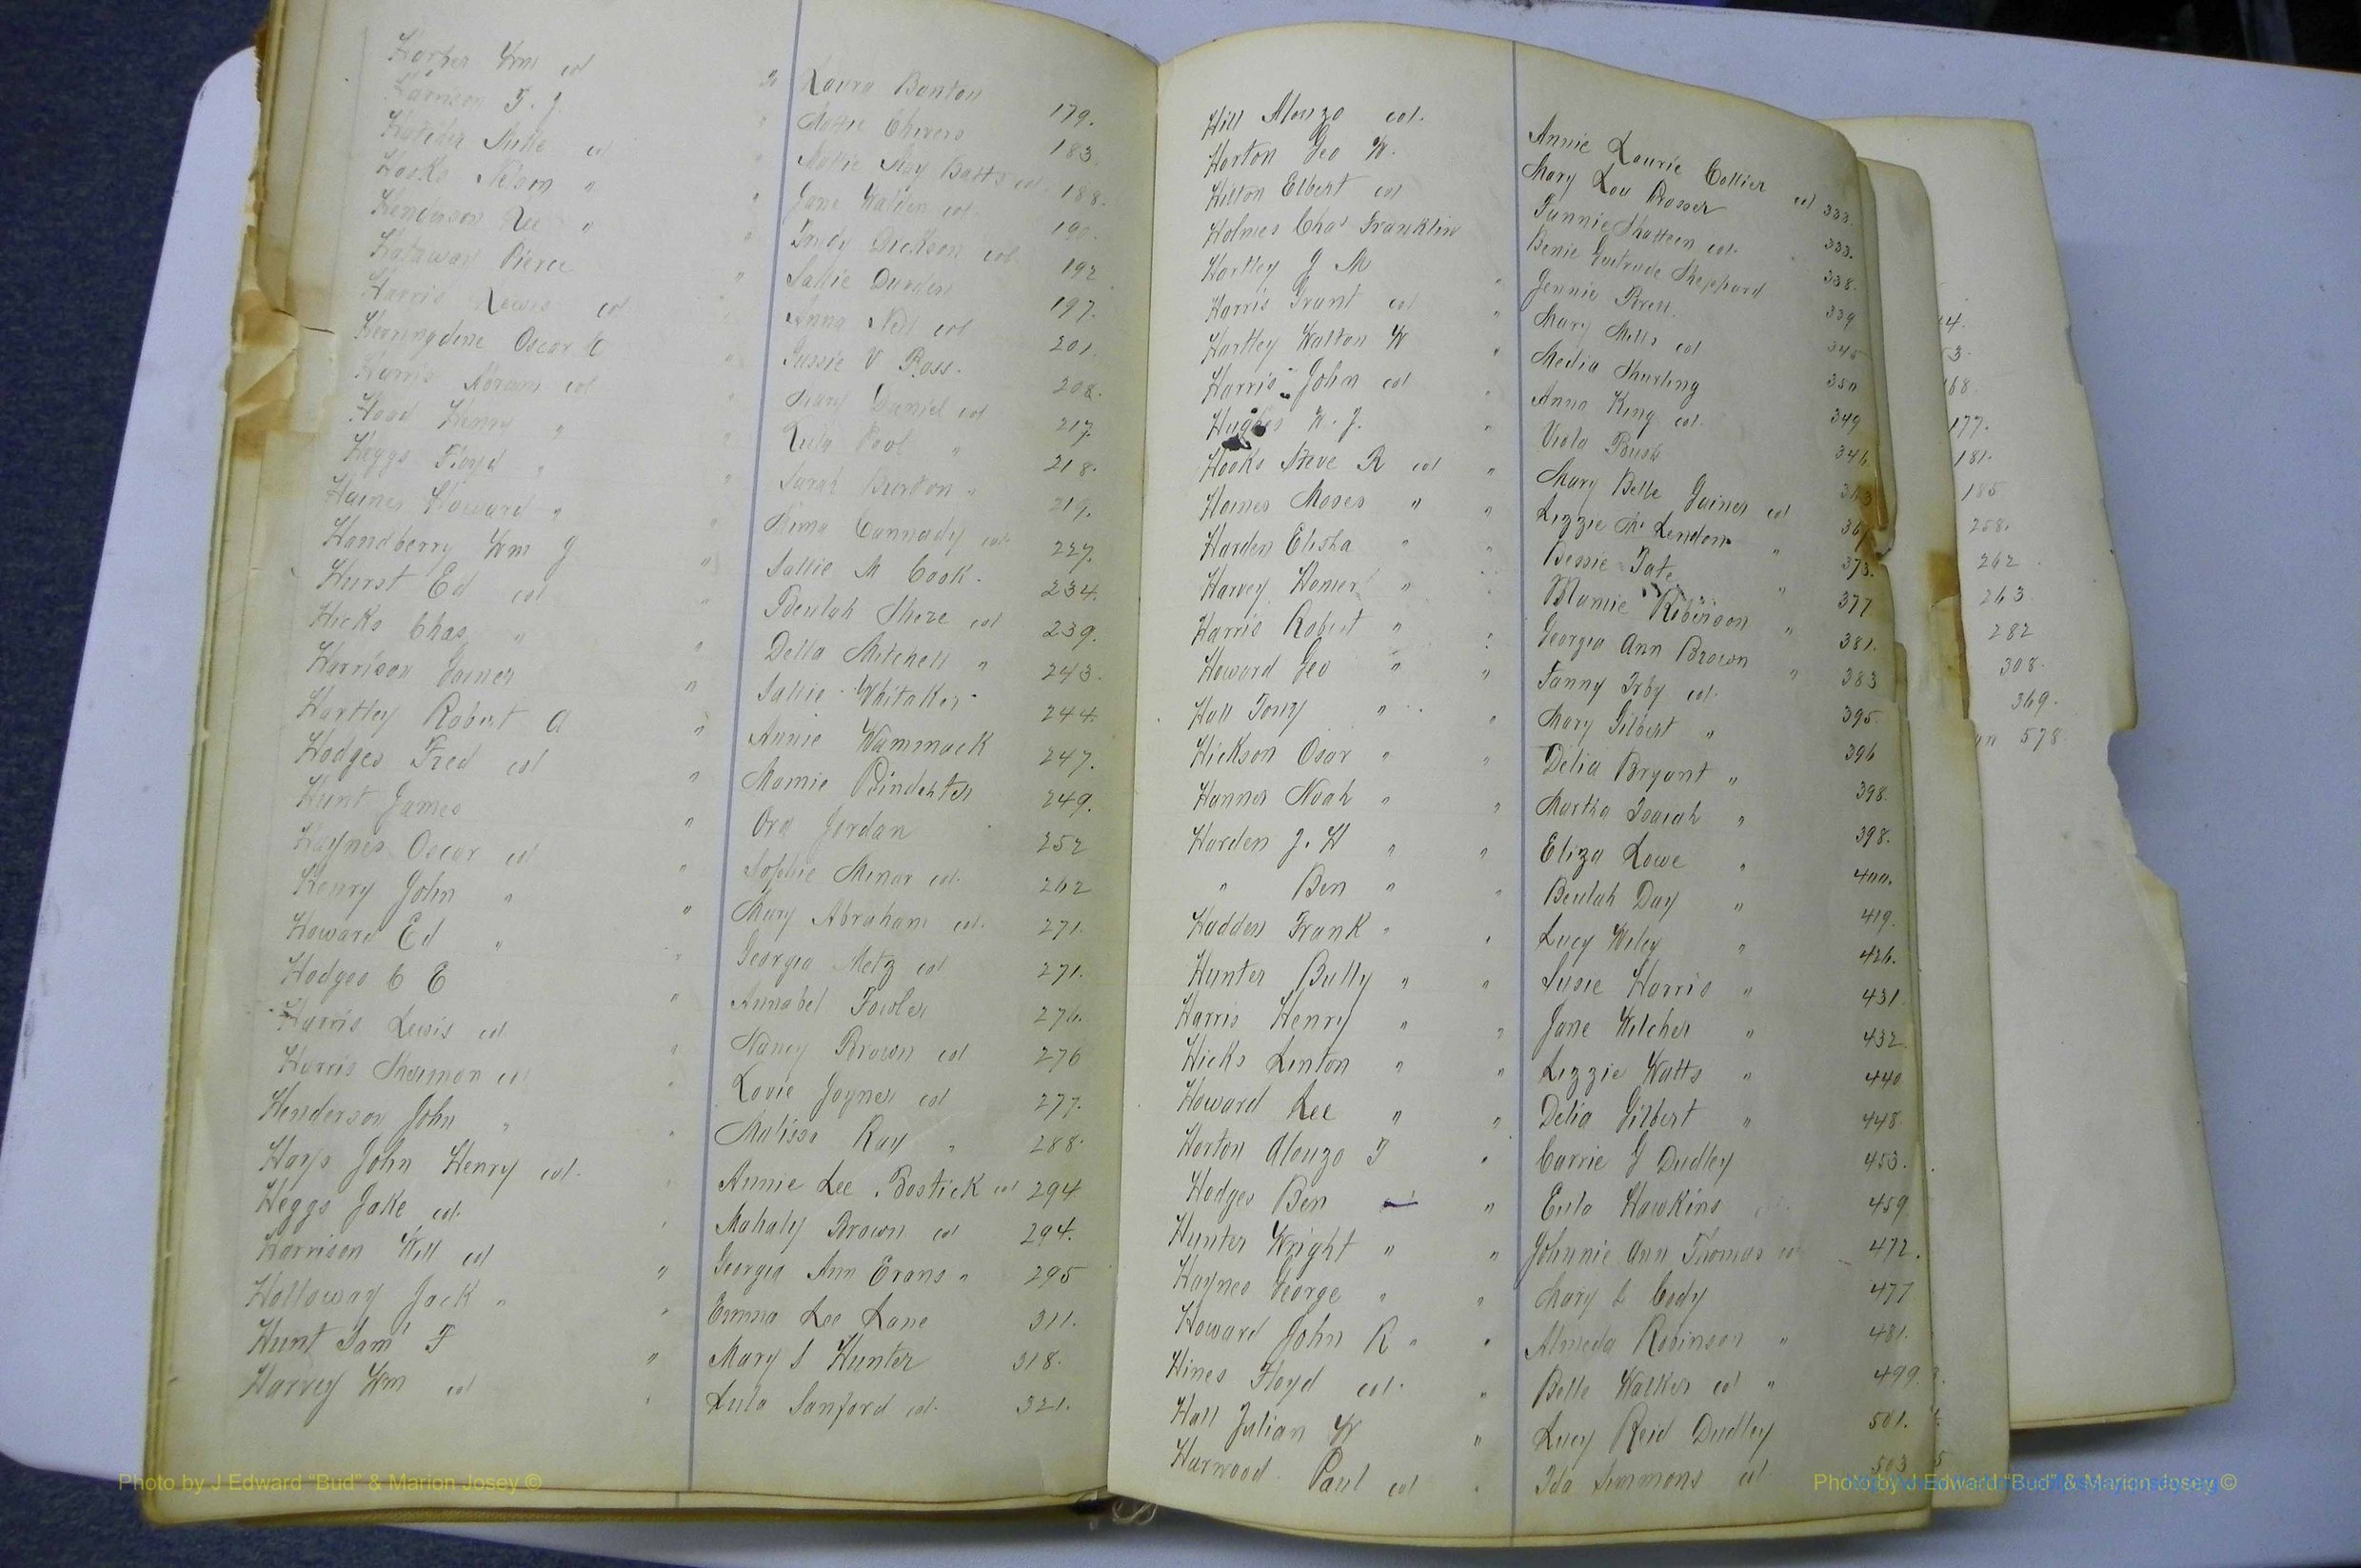 Harper Wm col to Laura Bonton 179.
Harrison T. J. " Mattie Chivers 183.
col " Mollie May Batts col. 188.
Hooks Nelson " " Jane Walden col 190.
Henderson Lee " " Indy Dickson col 192
Hataway Pierce " Sallie Durden 197.
Harris Lewis col " Anna Neil col 201.
Oscar C " Jussie V Ross. 208.
Harris Abram col " Mary Daniel col 217.
Hood Henry " " Lula Pool " 218.
Heggs Floyd " " Sarah Burton " 219.
Haines Howard " " Cannady col 227.
Handberry Wm J " Sallie M Cook. 234.
Hurst Ed col " Beulah Shoze col 239.
Hicks Chas " " Della Mitchell " 243.
Harrison Gainer " Sallie Whitaker 244.
Hartley Robert A " Annie Wammack 247.
Hodges Fred col " Mamie 249.
Hunt James " Ora Jordan 252
Haynes Oscar col " Sophie Minor col. 262
Henry John " " Mary Abraham col. 271.
Howard Ed " " Georgia Metz col 271.
Hodges C E " Annabel Fowler 276.
Harris Lewis col " Nancy Brown col 276
Harris Sherman col " Lovie Joyner col 277.
Henderson John " " Malissa Ray " 288.
Hays John Henry col. " Annie Lee Bostick col 294
Heggs Jake col. " Mahaly Brown col 294.
Harrison Will col " Georgia Ann Evans " 295
Holloway Jack " " Emma Lee Lane 311.
Hunt Sam'l F " Mary S Hunter 318.
Harvey Wm col " Lula Sanford col. 321.
Hill Alonzo col. Annie Laurie Collier col 333.
Horton Geo W. Mary Lou Rosser 333.
Hilton Elbert col Fannie Shatteen col. 338.
Holmes Chas Franklin Benie Gertrude Sheppard 339
Hartley J M " Jennie Brett. 345
Harris Grant col " Mary Mills col 350
Hartley Walton W " Media Shurling 349
Harris John col " Anna King col. 346
Hughes W. J. " Viola Bush 363
Hooks Steve R col " Mary Belle Gainer col 367
Homes Moses " " Lizzie McLendon " 373.
Harden Elisha " " Bessie Tate " 377
Harvey Homer " " Mamie Roberson " 381.
Harris Robert " " Georgia Ann Brown " 383
Howard Geo " " Fanny Irby col. 395.
Hall Tony " " Mary Gilbert " 396
Hickson Osar " " Delia Bryant " 398.
Hanner Noah " " Martha Isaiah " 398.
Harden J. H " " Eliza Lowe " 400.
" Ben " " Beulah Day " 419.
Hadden Frank " " Lucy Wiley " 426.
Hunter Bully " " Susie Harris " 431
Harris Henry " " Jane Wilcher " 432.
Hicks Linton " " Lizzie Watts " 440
Howard Lee " " Delia Gilbert " 448.
Horton Alonzo T " Carrie G Dudley 453.
Hodges Ben " Eula Hawkins 459
Hunter Wright " " Johnnie Ann Thomas col 472.
Haynes George " " Mary L Cody 477
Howard John R " " Almeda Robinson " 481.
Hines Floyd col. " Belle Walker col " 499.
Hall Julian W " Lucy Reid Dudley 501.
Harwood Paul col " Ida Simmons col 503
4.
3.
168.
177.
181.
185
258.
262
263
282
308.
369.
578.
Photo by J Edward “Bud” & Marion Josey ©
Photo by J Edward “Bud” & Marion Josey ©